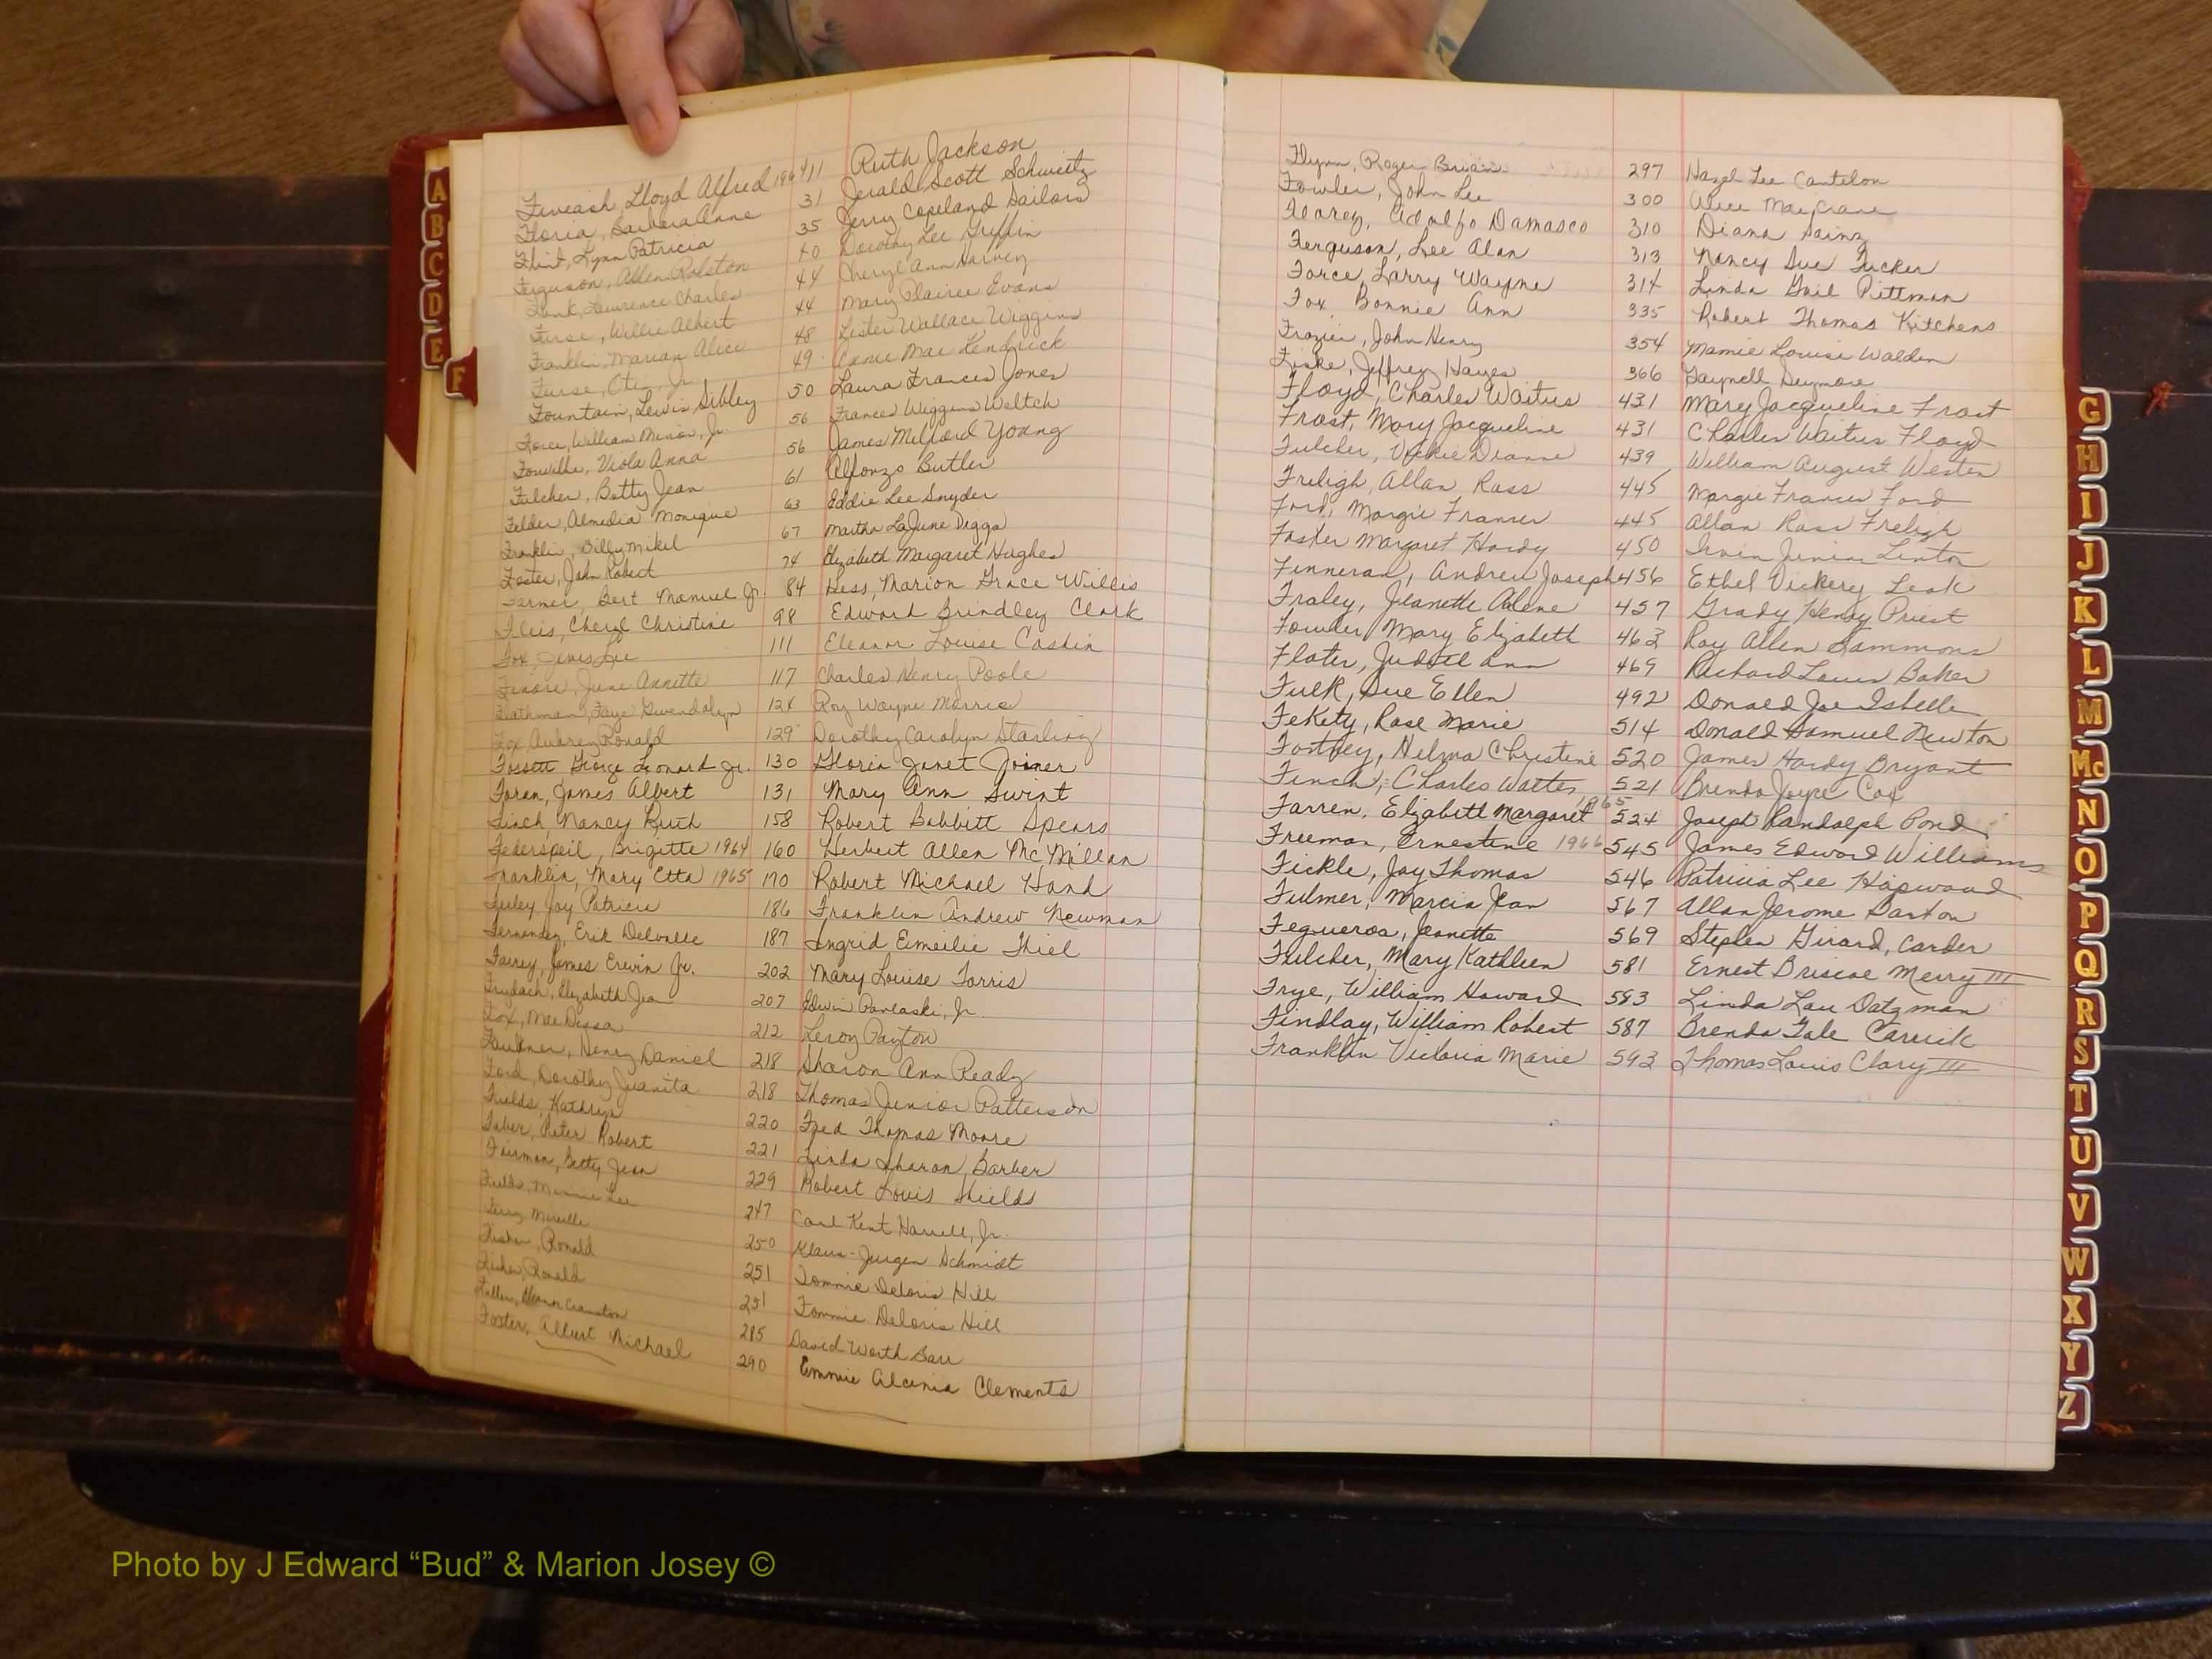 Fiveash, Lloyd Alfred 1964 11 Ruth Jackson
Floria, Barbara Anne 31 Jerald Scott Schweitz
Flint, Lynn Patricia 35 Jerry Copeland Sailors
Ferguson, Allen Ralston 40 Dorothy Lee Griffin
Funk, Lawrence Charles 44 Cheryl Ann Harvey
Furse, Willie Albert 44 Mary Clairice Evans
Franklin, Marian Alice 48 Lester Wallace Wiggins
Furse, Otis, Jr. 49 Annie Mae Kendrick
Fountain, Lewis Sibley 50 Laura Frances Jones
Force, William Minor, Jr. 56 Frances Wiggins Weltch
Fonville, Viola Anna 56 James Melford Young
Fulcher, Betty Jean 61 Alfonzo Butler
Felder, Almedia Monique 63 Eddie Lee Snyder
Franklin, Billy Mikel 67 Martha LaJune Diggs
Foster, John Robert 74 Elizabeth Margaret Hughes
Farmer, Bert Manuel Jr. 84 Hess, Marion Grace Willis
Fleis, Cheryl Christine 98 Edward Brindley Clark
Fox, James Lee 111 Eleanor Louise Caskin
June Annette 117 Charles Henry Poole
Faye Gwendolyn 124 Roy Wayne Morris
Fox, Aubrey Ronald 129 Dorothy Carolyn Starling
Fossett George Leonard Jr. 130 Gloria Janet Joiner
Foran, James Albert 131 Mary Ann Swint
Finch, Nancy Ruth 158 Robert Babbitt Spears
Federspeil, Brigette 1964 160 Herbert Allen McMillan
Franklin, Mary Etta 1965 170 Robert Michael Hand
Joy Patricia 186 Franklin Andrew Newman
Fernandez, Erik Delvalle 187 Ingrid Emeilie Thiel
James Erwin Jr. 202 Mary Louise Torris
Frydach, Elizabeth Jean 207 Edwin Pavlaski, Jr.
Fox, Mae Dessa 212 Leroy Payton
Faulkner, Henry Daniel 218 Sharon Ann Ready
Ford, Dorothy Juanita 218 Thomas Junior Patterson
Fields, Kathryn 220 Fred Thomas Moore
Faber, Peter Robert 221 Linda Sharon Barber
Fairman, Betty Jean 229 Robert Louis Shields
Fields, Minnie Lee 247 Carl Kent Harrell, Jr.
Ferry Mireille 250 Klaus-Jurgen Schmidt
Fisher, Ronald 251 Tommie Deloris Hill
Fisher, Ronald 251 Tommie Deloris Hill
Cranston 285 David Worth Barr
Foster, Albert Michael 290 Emmie Alcenia Clements
Flynn, Roger Brian 297 Hazel Lee Cantelon
Fowler, John Lee 300 Alice Mae Crane
Florez, Adolfo Damasco 310 Diana Sainz
Ferguson, Lee Alan 313 Nancy Sue Tucker
Force, Larry Wayne 314 Linda Gail Pittman
Fox, Bonnie Ann 335 Robert Thomas Kitchens
Frazier, John Henry 354 Mamie Louise Walden
Fiske, Jeffrey Hayes 366 Gaynell Seymore
Floyd, Charles Waitus 431 Mary Jacqueline Frost
Frost, Mary Jacqueline 431 Charles Waitus Floyd
Fulcher, Vickie Dianne 439 William August Westen
Freligh, Allan Ross 445 Margie Frances Ford
Ford, Margie Frances 445 Allan Ross Freligh
Foster Margaret Hardy 450 Irvin Linton
Finneran, Andrew Joseph 456 Ethel Vickery Leak
Fraley, Jeanette Arlene 457 Grady Henry Priest
Fowler Mary Elizabeth 463 Roy Allen Sammons
Flater, Judith Ann 469 Richard Louis Baker
Fulk, Sue Ellen 492 Donald Joe Isbelle
Fekety, Rose Marie 514 Donald Samuel Newton
Fortney, Helma Christine 520 James Hardy Bryant
Finch, Charles Walter 521 Brenda Joyce Cox
Farren, Elizabeth Margaret 1965 524 Joseph Randolph Pond
Freeman, Ernestine 1966 545 James Edward Williams
Fickle, Jay Thomas 546 Patricia Lee Hopwood
Fulmer, Marcia Jean 567 Allan Jerome Barton
Fegueroa, Jeanette 569 Stephen Girard, Carder
Fulcher, Mary Kathleen 581 Ernest Briscoe Merry III
Frye, William Howard 583 Linda Lou Datzman
Findlay, William Robert 587 Brenda Gale Carrick
Franklin Victoria Marie 593 Thomas Louis Clary III
A
B
C
D
E
F
G
H
I
J
K
L
M
Mc
N
O
P
Q
R
S
T
U
V
W
X
Y
Z
Photo by J Edward “Bud” & Marion Josey ©